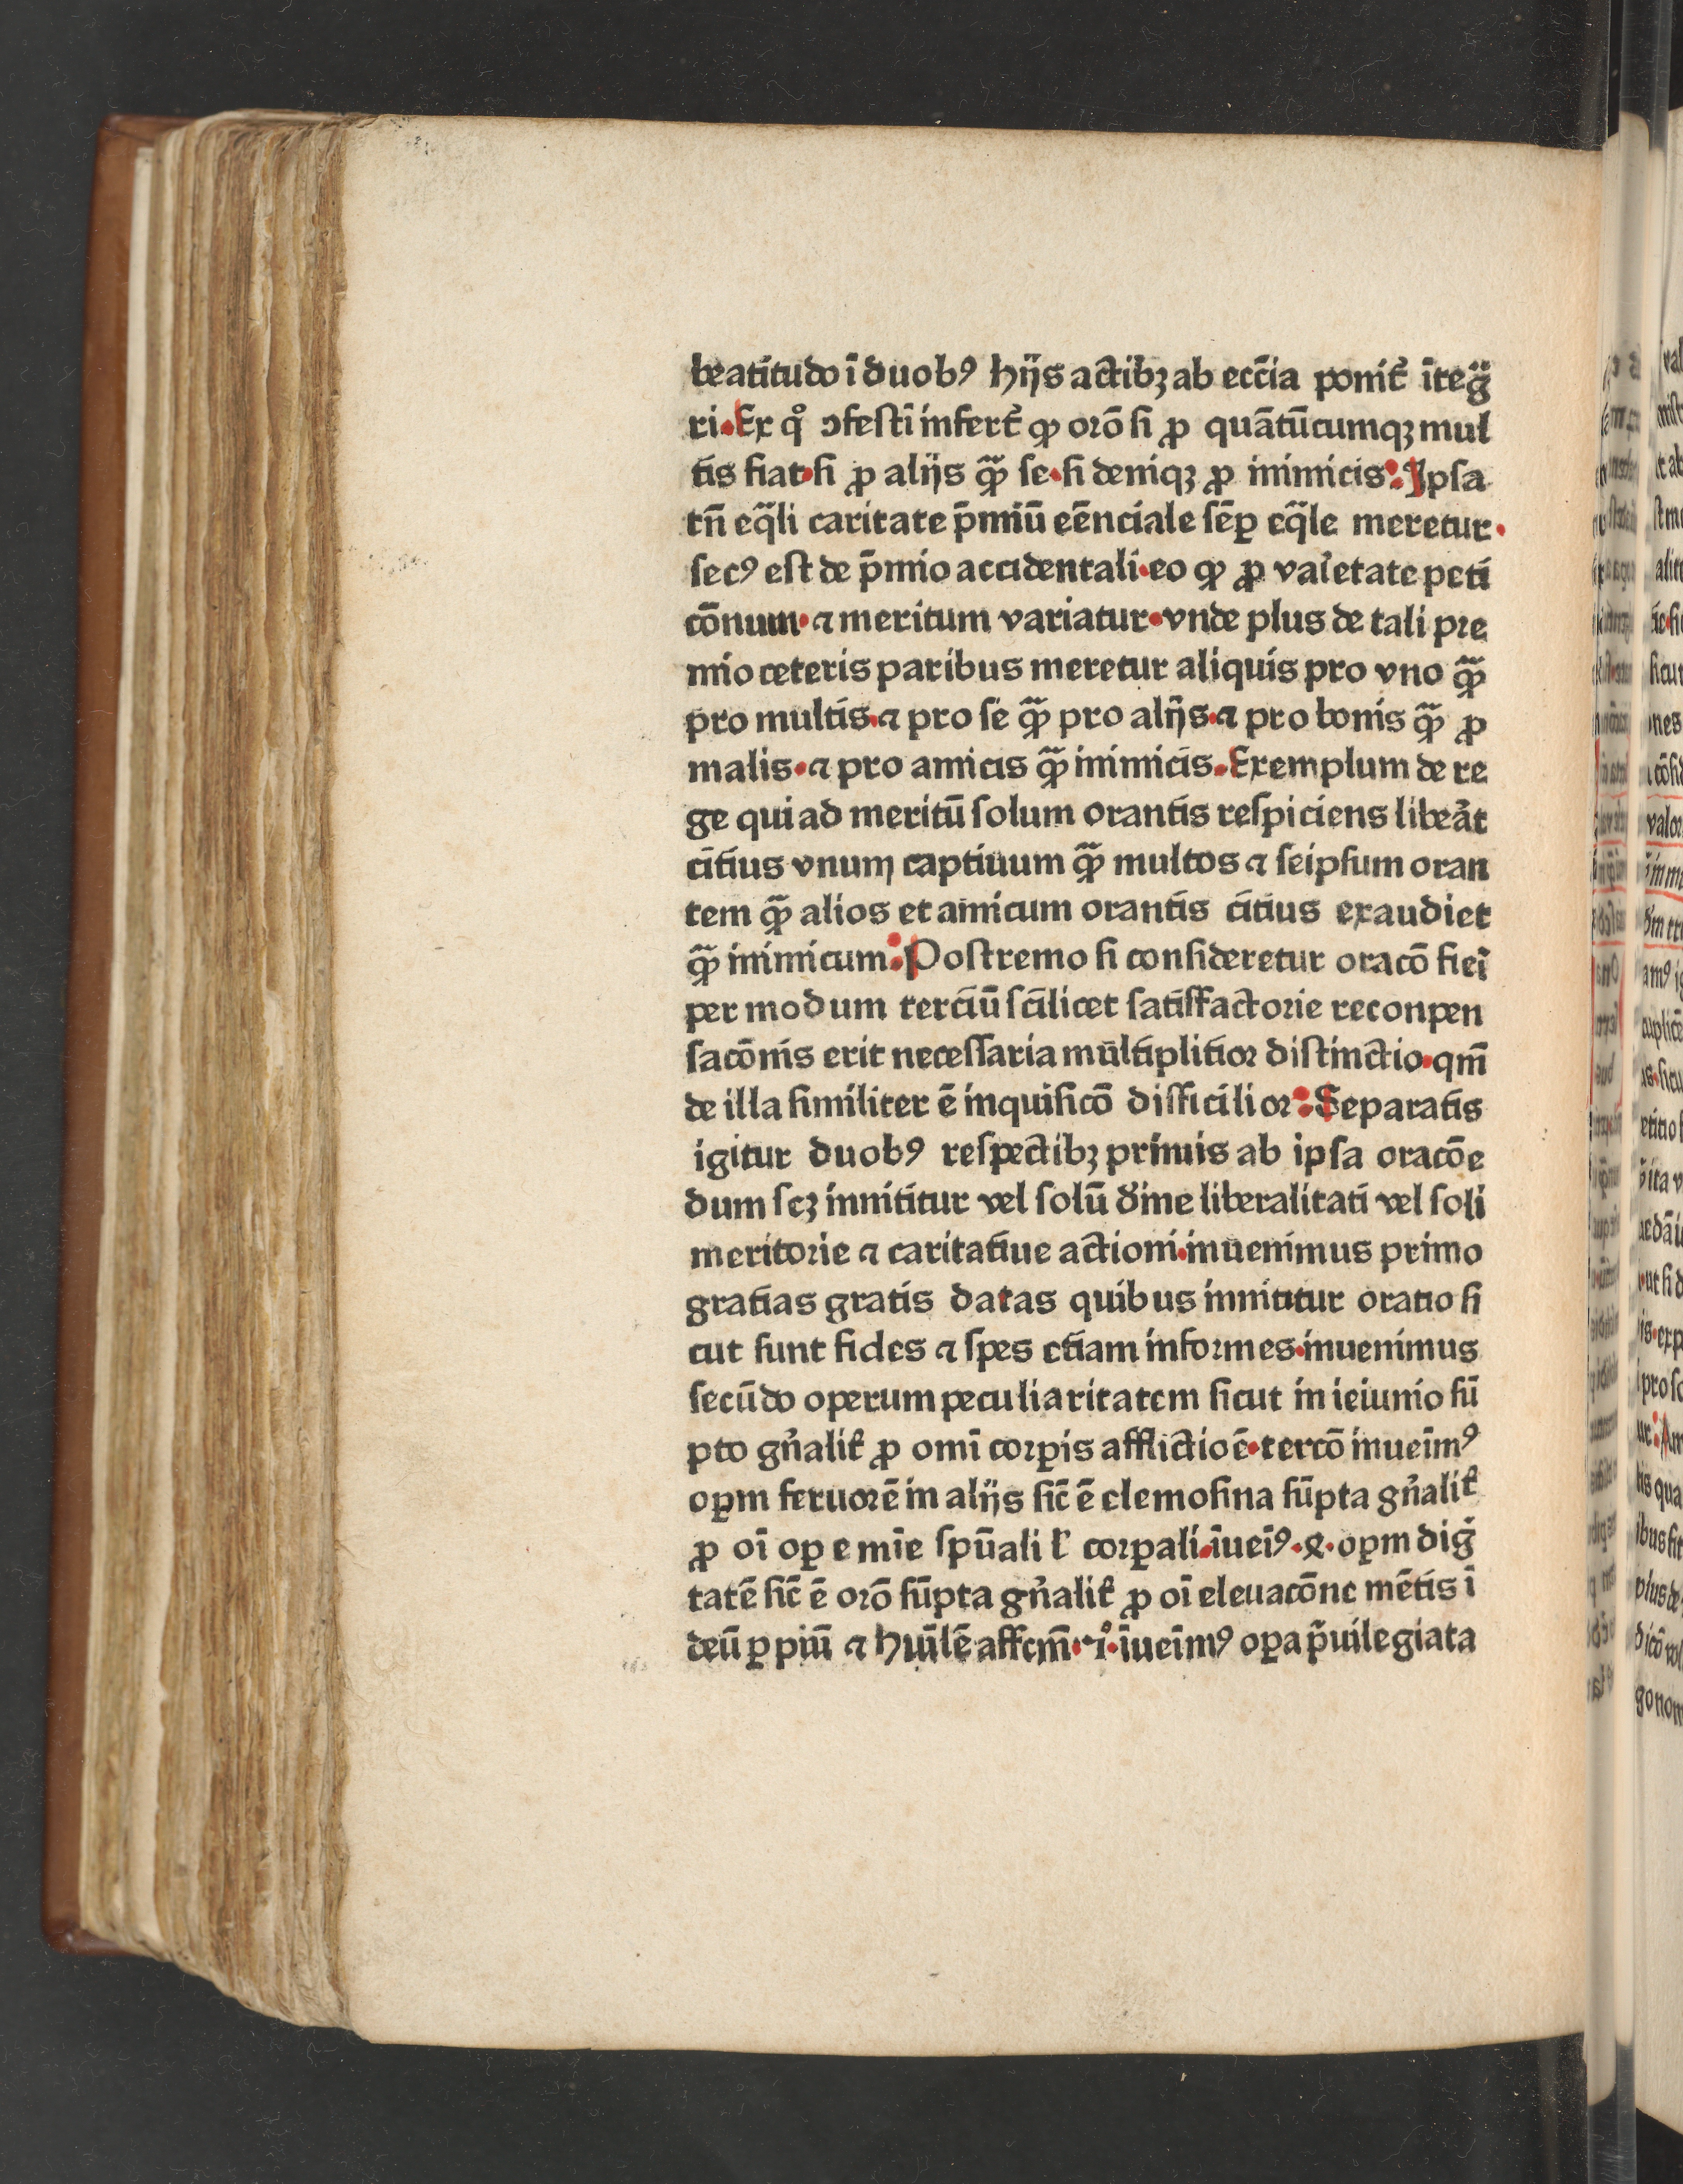 beatitudo ī duobꝰ hijs actibꝫ ab eccīa ponit᷑ īteg̈
ri. Ex qͦ ↄfestī infert᷑ ꝙ orō si ꝓ quātūcumqꝫ mul
tis fiat· si ꝓ alijs qꝫ̄ se· si deniqꝫ ꝓ inimicis: Ipsa
tn̄ eq̄li caritate p̄miū eēnciale sēꝑ eq̄le meretur·
secꝰ est de p̄mio accidentali· eo ꝙ ꝓ vaꝛ̾etate peti
cōnum· ⁊ meritum variatur· vnde plus de tali pre
mio ceteris paribus meretur aliquis pro vno qꝫ̄
pro multis· ⁊ pro se qꝫ̄ pro alijs· ⁊ pro bonis qꝫ̄ ꝓ
malis· ⁊ pro amicis qꝫ̄ inimicis. Exemplum de re
ge qui ad meritū solum orantis respiciens libeāt
citius vnum captiuum qꝫ̄ multos ⁊ seipsum oran
tem qꝫ̄ alios et amicum orantis citius exaudiet
qꝫ̄ inimicum: Postremo si consideretur oracō fieī
per modum terciū scilicet satisfactorie reconpen
sacōnis erit necessaria mūltiplitior distinctio· qm̄
de illa similiter ē inquisicō difficilior: Separatis
igitur duobꝰ respectibꝫ primis ab ipsa oracōe
dum scꝫ innititur vel solū d̾ine liberalitati vel soli
meritorie ⁊ caritatiue actioni· inuenimus primo
gratias gratis datas quibus innititur oratio si
cut sunt fides ⁊ spes etiam informes· inuenimus
secūdo operum peculiaritatem sicut in ieiunio sū
pto gn̄̾alit̾ ꝓ omī corꝑis afflictioē· tercō inueīmꝰ
oꝑm feruorē in alijs sic̄ ē elemosina sūpta gn̄̾alit̾
ꝓ oī oꝑe mīe spūali l̾ corꝑali· īueīꝰ· ꝝ· oꝑm dig̾
tatē sic̄ ē orō sūpta gn̄̾alit̾ ꝓ oī eleuacōne mētis ī
deū ꝑ piū ⁊ huīlē affcm̄· ꝛıͦ· īueīmꝰ oꝑa p̄uilegiata